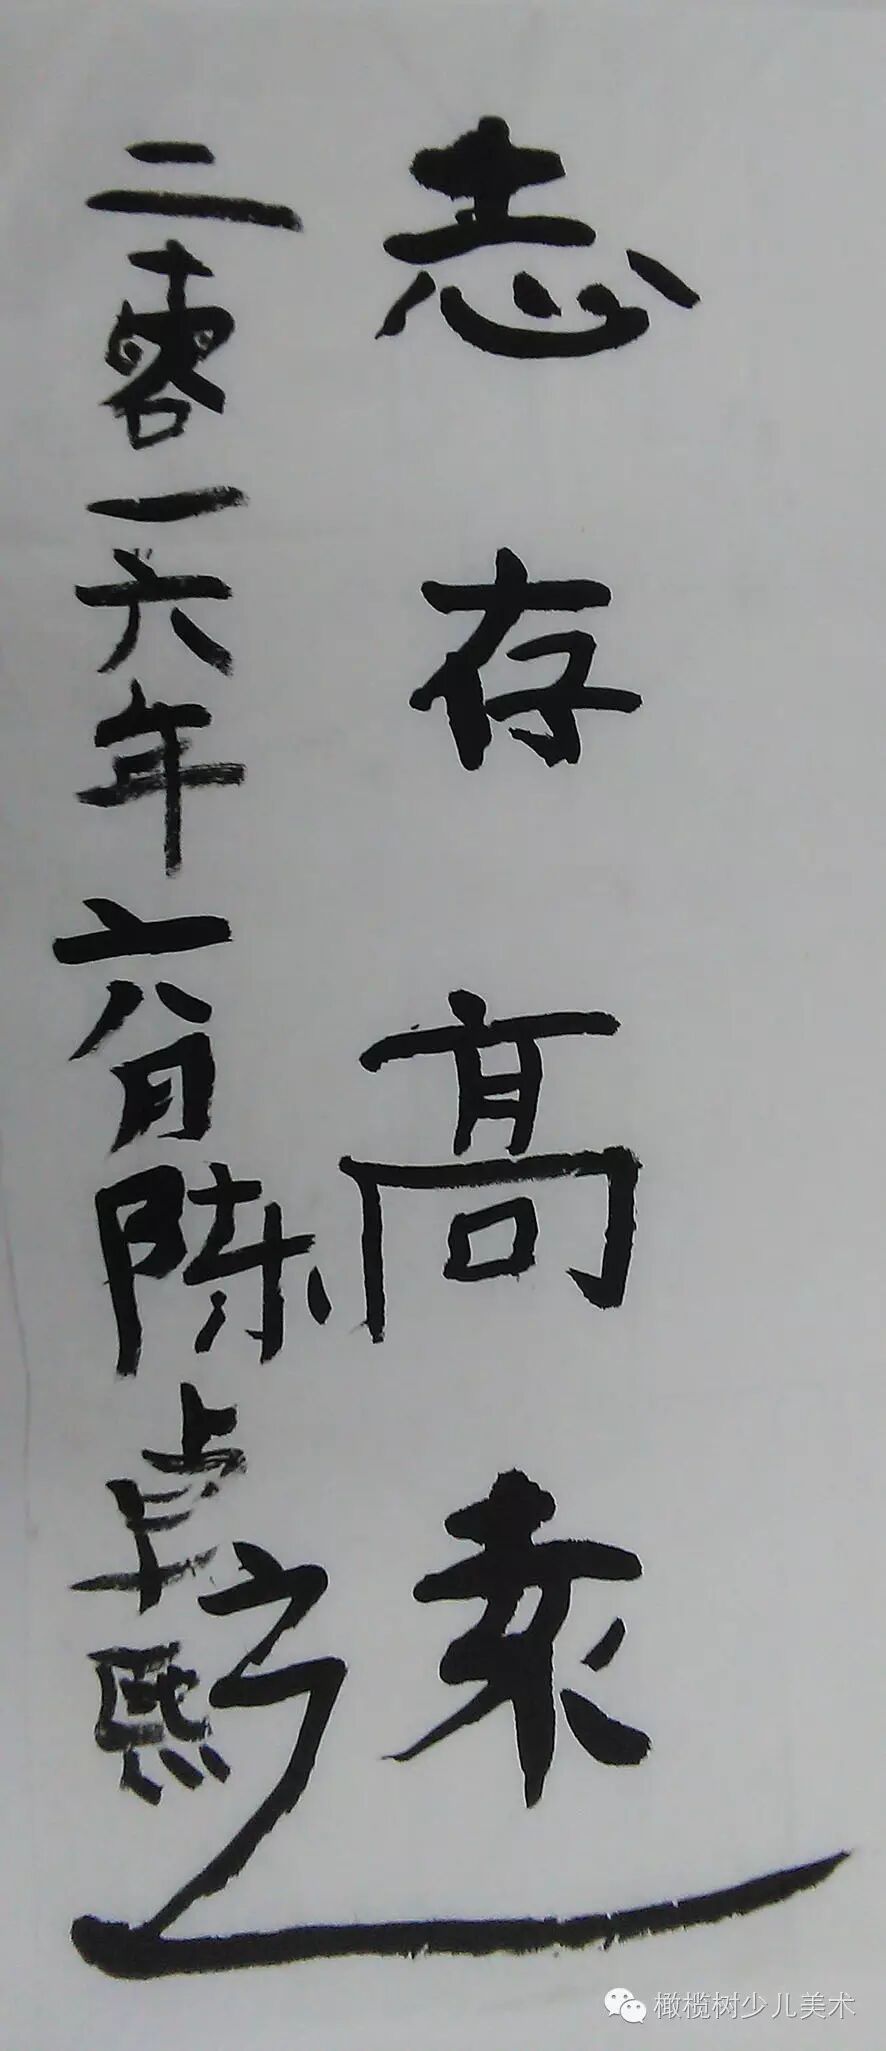 志存高遠
二零一六年六月陈卓熙
橄榄树少儿美术